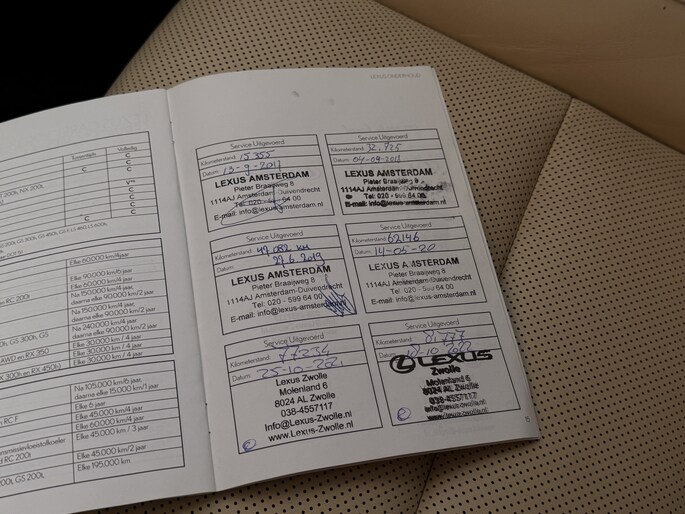 LEXUS ONDERHOUD
Essentieels
Volledig
C
C
C
C
C
C
C
C
200t, NX 200t,
Elke 60.000 km/4jaar
Elke 90.000 km/6 jaar
Na 150.000 km/4 jaar,
daarna elke 90.000 km/2 jaar
Na 240.000 km/4 jaar,
daarna elke 90.000 km/2 jaar
Elke 30.000 km / 4 jaar
Elke 30.000 km / 4 jaar
Elke 30.000 km/4 jaar
RC 200t
GS 300h, GS
AWD en RX 350
RX 450h)
Na 105.000 km/6 jaar,
daarna elke 15.000 km/1 jaar
Elke 6 jaar
Elke 45.000 km/4 jaar
Elke 60.000 km/4 jaar
Elke 45.000 km / 3 jaar
Elke 45.000 km / 2 jaar
Elke 195.000 km
RC F
RC 200t
GS 200t,
Service Uitgevoerd
Kilometerstand: 15 355
Datum: 13-9-2017
LEXUS AMSTERDAM
Pieter Braaijweg 8
1114AJ Amsterdam-Duivendrecht
Tel: 020 - 599 64 00
E-mail: info@lexus-amsterdam.nl
Service Uitgevoerd
Kilometerstand: 32.725
Datum: 04-09-2018
LEXUS AMSTERDAM
Pieter Braaijweg 8
1114AJ Amsterdam-Duivendrecht
Tel: 020 - 599 64 00
E-mail: info@lexus-amsterdam.nl
Service Uitgevoerd
Kilometerstand: 47.082 km
Datum: 27.6.2019
LEXUS AMSTERDAM
Pieter Braaijweg 8
1114AJ Amsterdam-Duivendrecht
Tel: 020 - 599 64 00
E-mail: info@lexus-amsterdam.nl
Service Uitgevoerd
Kilometerstand: 62146
Datum: 14-05-20
LEXUS AMSTERDAM
Pieter Braaijweg 8
1114AJ Amsterdam-Duivendrecht
Tel: 020 - 599 64 00
E-mail: info@lexus-amsterdam.nl
Service Uitgevoerd
Kilometerstand: 77234
Datum: 25-10-2021
Lexus Zwolle
Molenland 6
8024 AL Zwolle
038-4557117
Info@Lexus-Zwolle.nl
www.Lexus-Zwolle.nl
Service Uitgevoerd
Kilometerstand: 81.777
Datum: 10-10-2022
LEXUS
Zwolle
Molenland 6
8024 AL Zwolle
038-4557117
info@lexus-zwolle.nl
www.lexus-zwolle.nl